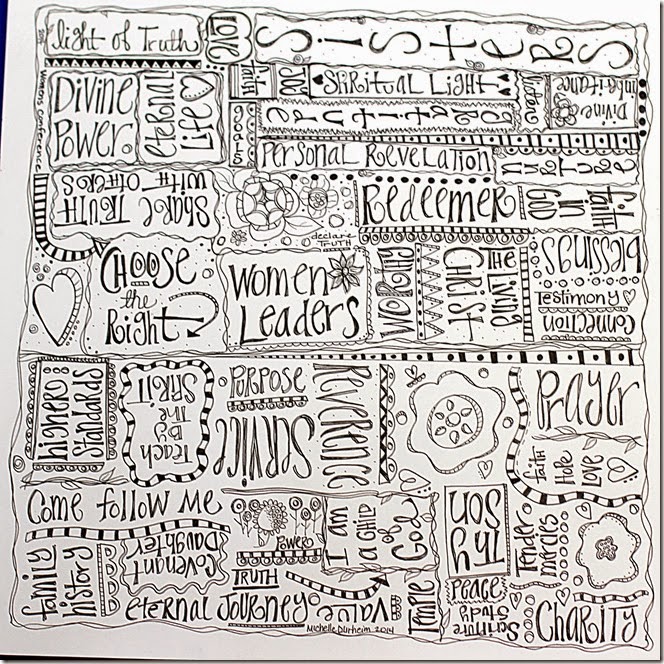 light of Truth
LOVE
SiSteRS
womens conference
Divine
Power
eternal
Life
Faith
Joy
SPiRitual Light
Nature
Divine
inheritance
Goals
gratitude
Personal Revelation
nurture
SHaRe TRUTH
with others
declare
TRUTH
Redeemer
faith
in
God
CHOOSE
the
Right
Women
Leaders
Worthy
THe Living
CHRIST
blessings
Testimony
Connection
higher
Standards
Teach
By
The
SPiRit
PURPOSE
Service
Reverence
PRayeR
Faith
Hope
Love
Come follow Me
Power
I am
a CHilD
of
God
THy
Son
Tender
mercies
family
history
Covenant
Daughter
TRUTH
eternal Journey
value
Temple
Peace
Scripture
Study
CHaRity
Michelle Durheim 2014